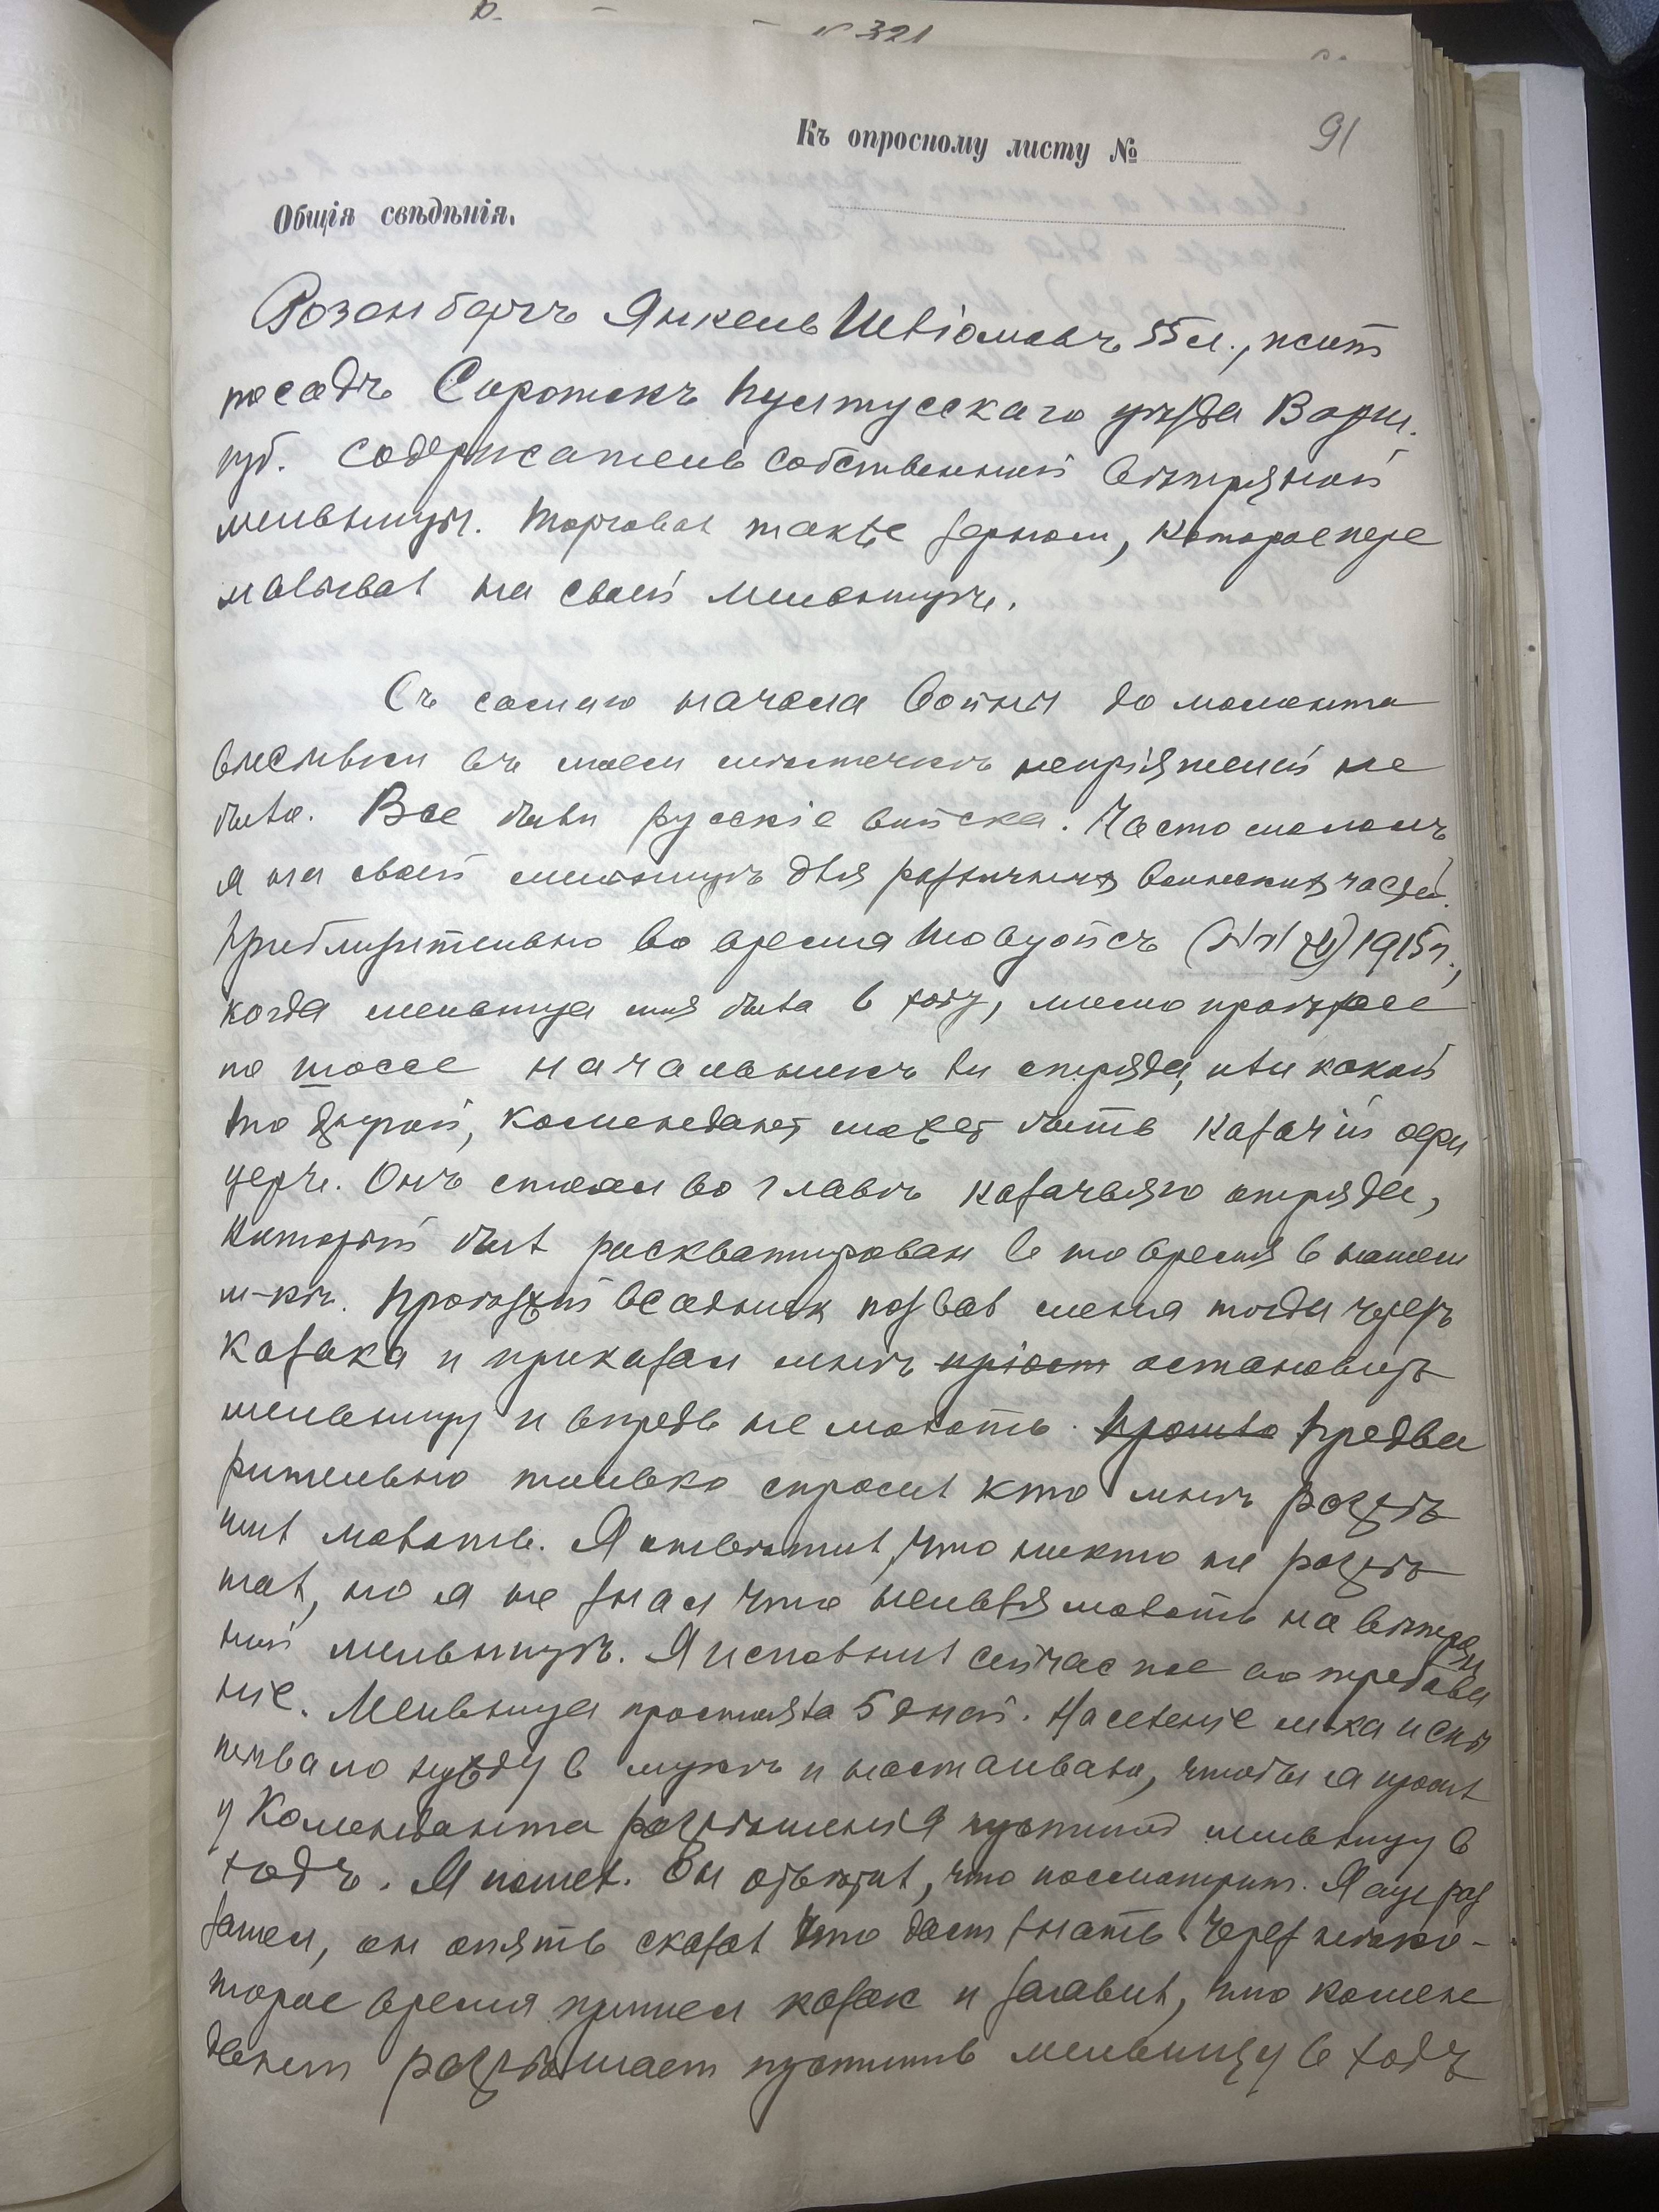 № 321
91
Къ опросному листу №
Общія свѣдѣнія.
Розенбергъ Янкель Шліомовъ 55 л., жит
посадъ Сироткъ Пултусскаго уѣзда Варш.
губ. Содержатель собственной вѣтряной
мельницы. Торговал также зерном, которое пере
малывал на своей мельницѣ.
Съ самаго начала войны до момента
высылки въ моем мѣстечкѣ непріятелей не
было. Все были русскіе войска. Часто мололъ
я на своей мельницѣ для различных воинских частей.
Приблизительно во время Шовуойсъ 1915 г.,
когда мельница моя была в ходу, мимо проѣзжал
по шоссе начальникъ ли отряда, или какой
то другой, комендант может быть казачій офи
церъ. Онъ стоял во главѣ казачьяго отряда,
который был расквартирован в то время в нашем
м-кѣ. Проѣзжій всадник позвал меня тогда черезъ
казака и приказал мнѣ пріост остановить
мельницу и впредь не молоть. Прошло Предва
рительно только спросил кто мнѣ разрѣ
шил молоть. Я отвѣтил, что никто не разрѣ
шал, но я не знал что нельзя молоть на вѣтрян
ной мельницѣ. Я исполнил сейчас же его требова
ніе. Мельница простояла 5 дней. Населеніе м-ка испы
тывало нужду в мукѣ и настаивало, чтобы я просил
у Коменданта разрѣшенія пустить мельницу в
ходъ. Я пошел. Он отвѣтил, что посмотрит. Я еще раз
зашел, он опять сказал что даст знать. Через нѣко-
торое время пришел казак и заявил, что комен
дант разрѣшает пустить мельницу в ходъ